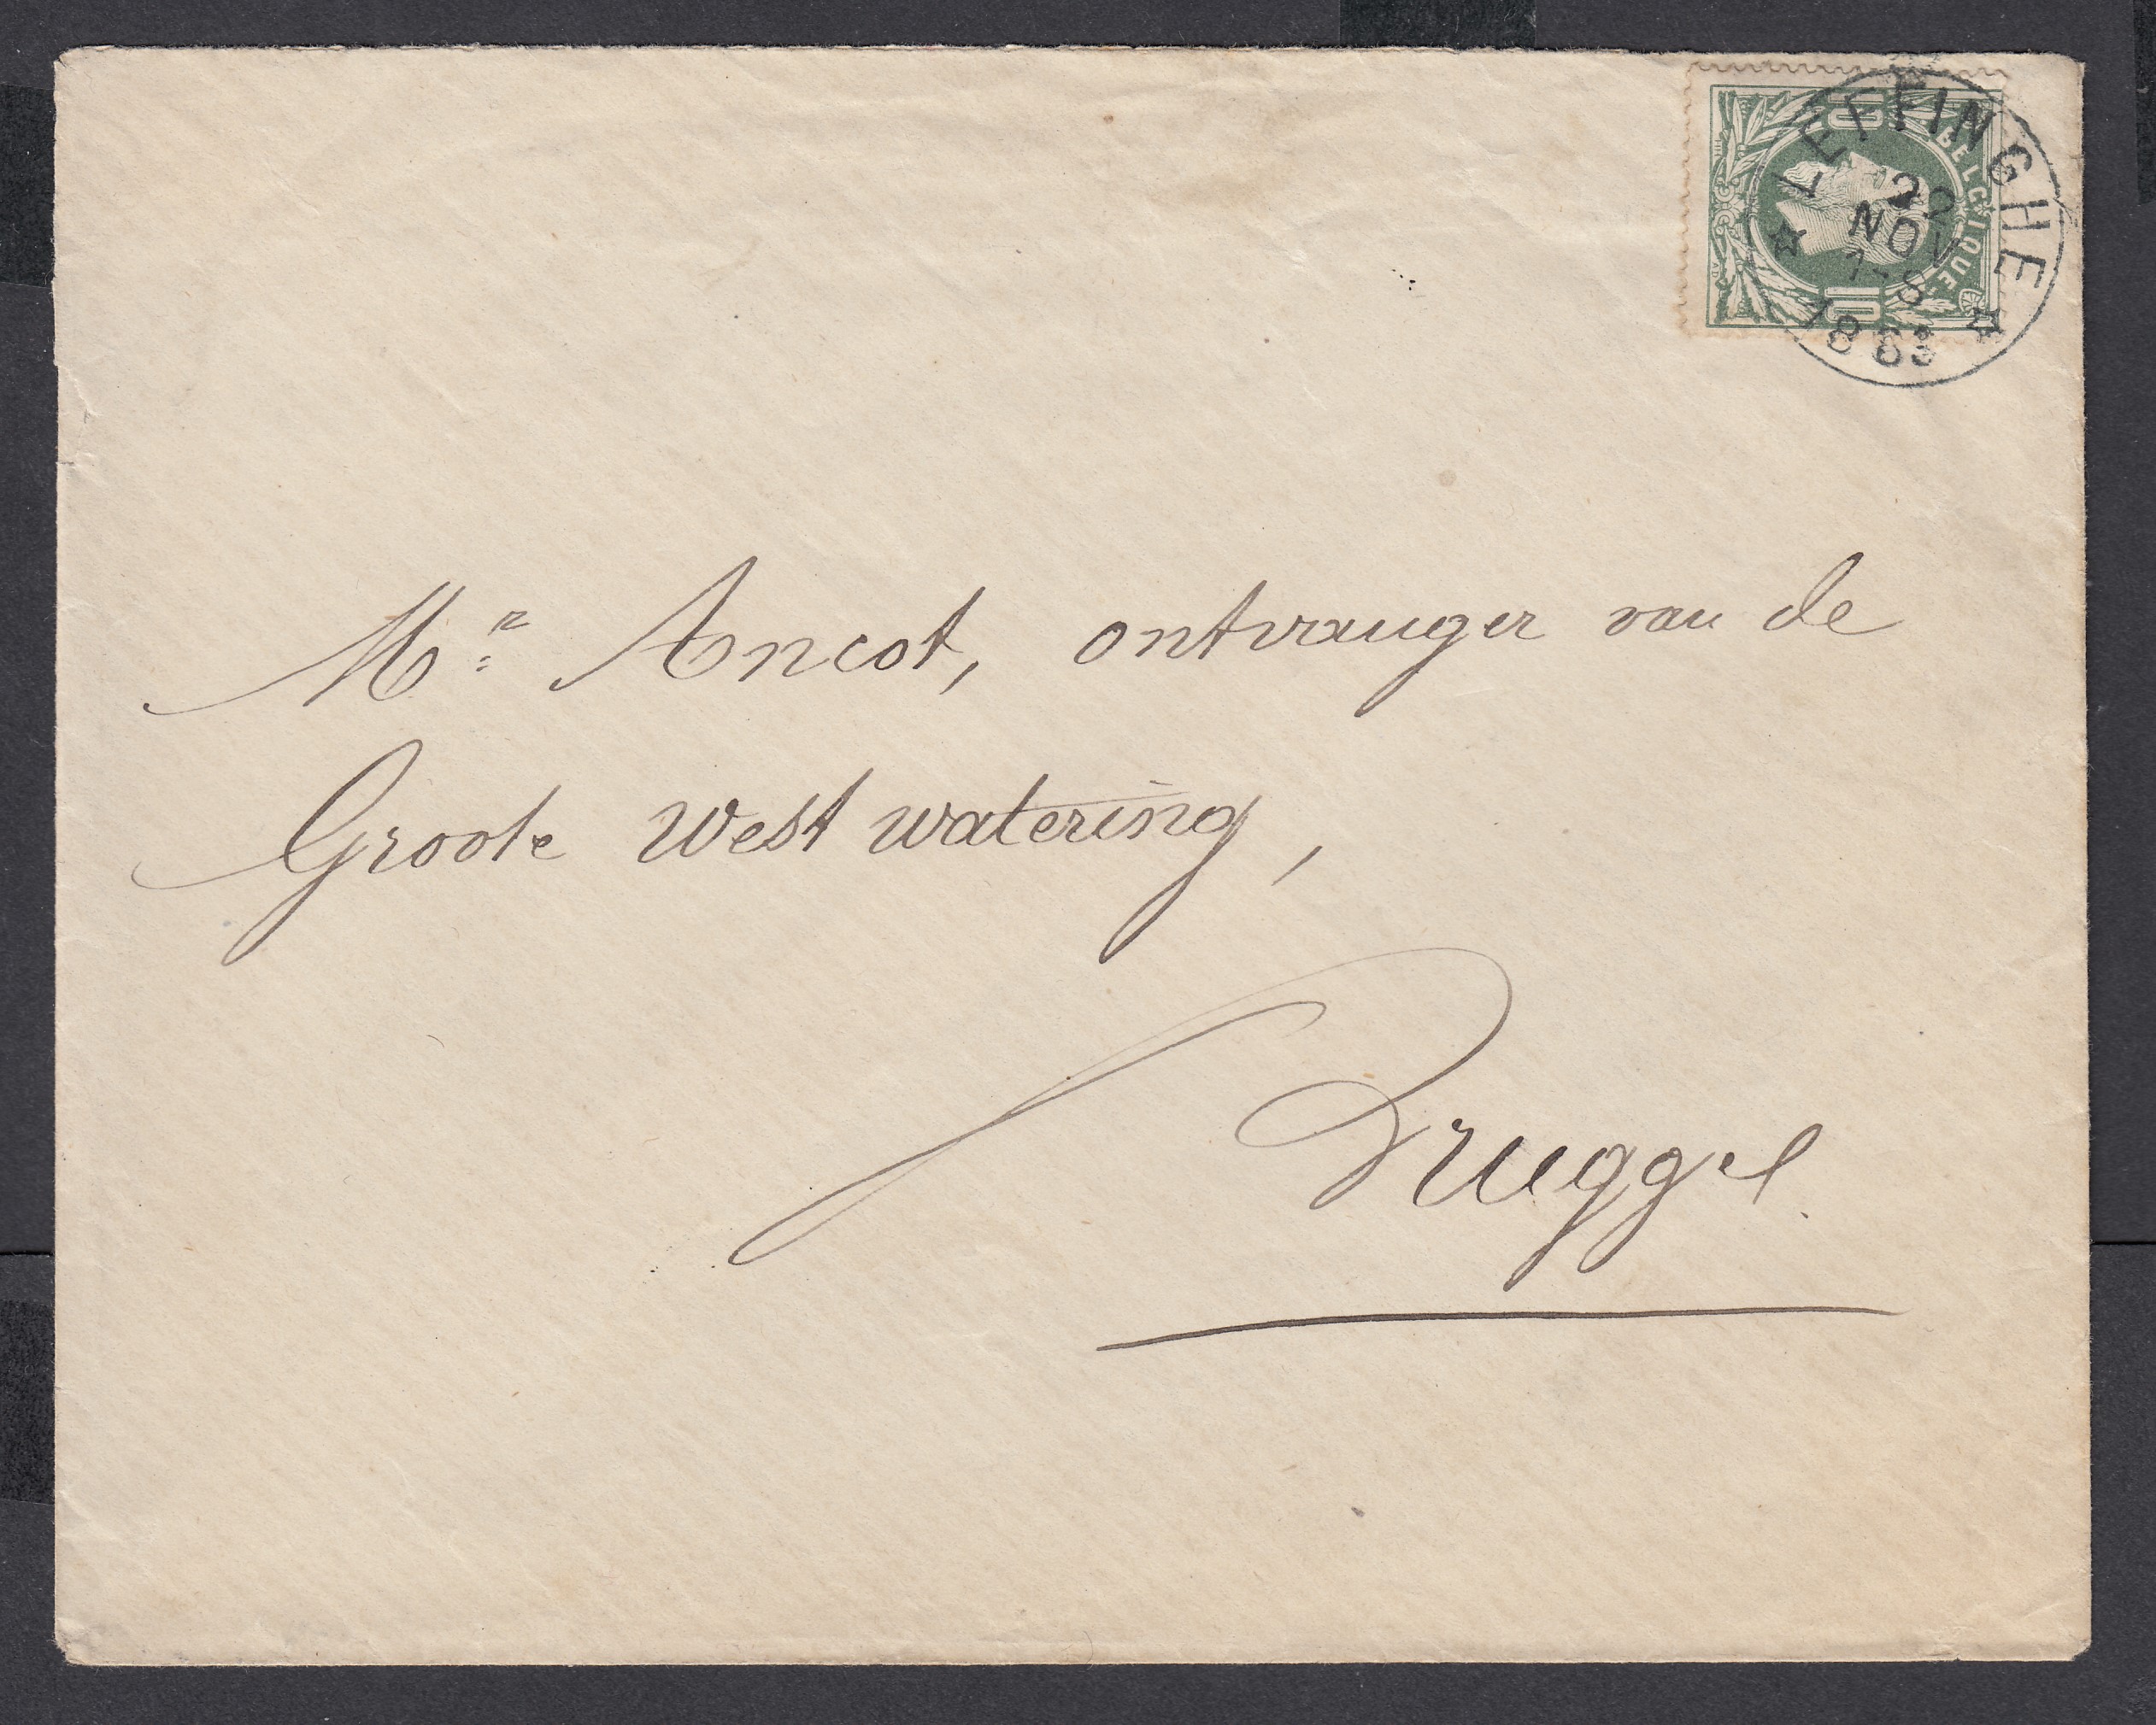 LEFFINGHE
22
NOV
7-8
1883
BELGIQUE
10
10
Mr Ancot, ontvanger van de
Groote West watering,
Brugge